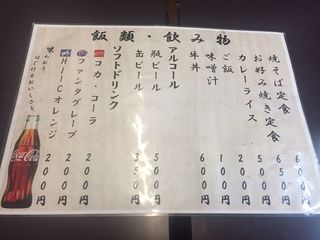 飯類・飲み物
焼そば定食 600円
お好み焼き定食 650円
カレーライス 550円
ご飯 200円
味噌汁 100円
牛丼 600円
アルコール
瓶ビール 500円
缶ビール 350円
ソフトドリンク
コカ・コーラ 200円
ファンタグレープ 200円
HI-Cオレンジ 200円
味わおう、
はじけるおいしさを。
Coca-Cola